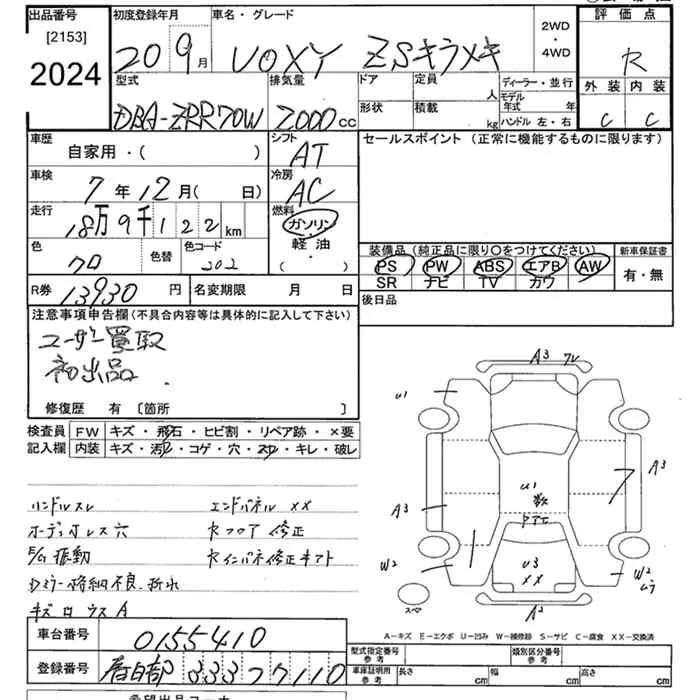 出品番号
[2153]
2024
初度登録年月
20 9月
車名・グレード
VOXY ZSキラメキ
2WD
・
4WD
評価点
R
外装 内装
C C
型式
DBA-ZRR70W
排気量
2000cc
ドア
定員
人
形状
積載
kg
ディーラー・並行
モデル年式 年
ハンドル 左・右
車歴
自家用・( )
シフト
AT
セールスポイント (正常に機能するものに限ります)
車検
7年12月( 日)
冷房
AC
走行
18万9千122km
燃料
ガソリン
軽油
・
( )
色
クロ
色替
色コード
202
装備品(純正品に限り〇をつけてください)
PS PW ABS エアB AW
SR ナビ TV カワ
新車保証書
有・無
R券
13930円
名変期限 月 日
後日品
注意事項申告欄(不具合内容等は具体的に記入して下さい)
ユーザー買取
初出品.
修復歴 有 〔箇所 〕
検査員 FW キズ・飛石・ヒビ割・リペア跡・×要
記入欄 内装 キズ・汚レ・コゲ・穴・スレ・キレ・破レ
ハンドルスレ
オーディオレス穴
E/G振動
Dミラー格納不良.折れ
キズロウスA
エンドパネル XX
Rフロア修正
Rインパネ修正キアト
A3 フレ
U1
A3
U1
A3
W2
U3
XX
W2
ムラ
A2
スペア
A－キズ E－エクボ U－凹み W－補修跡 S－サビ C－腐食 XX－交換済
車台番号
0155410
登録番号
春日部 333 フ 7110
型式指定番号
参考
類別区分番号
参考
車庫証明用
参考
長さ cm
幅 cm
高さ cm
希望出品コーナー